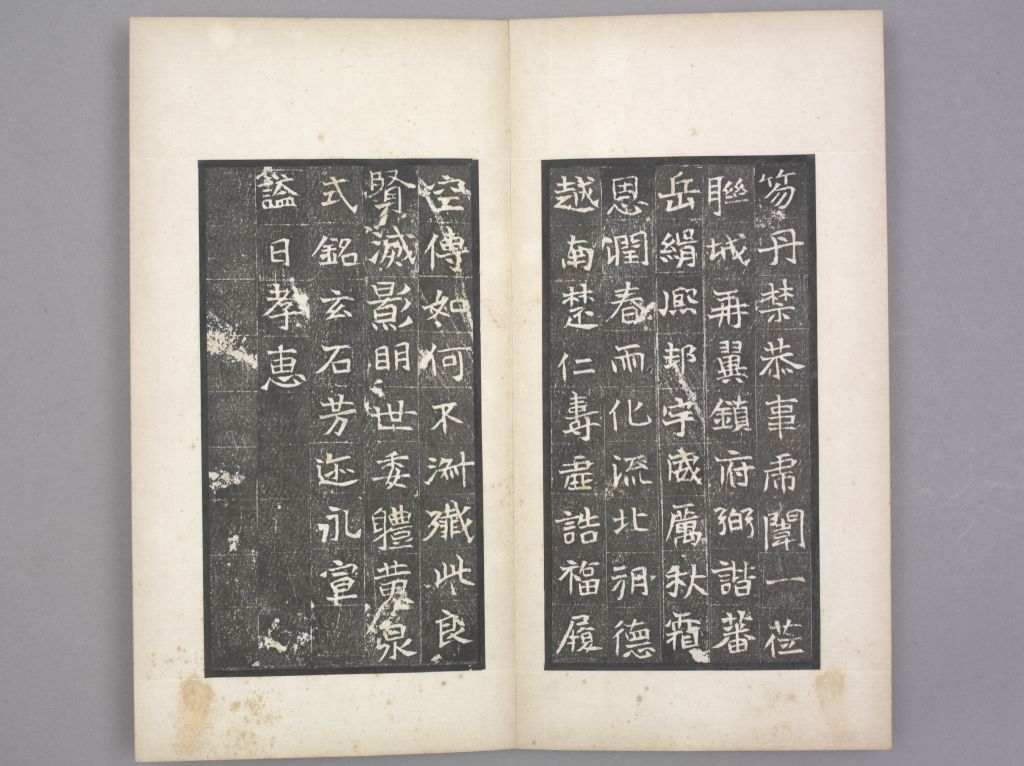 笏丹禁恭事帝闈一莅
聯城再翼鎮府弼諧蕃
岳緝熙邦宇威厲秋霜
恩潤春雨化流北朔德
越南楚仁壽虛誥福履
空傳如何不淵殲此良
賢滅影明世委體黃泉
式銘玄石芳迹永宣
謚曰孝惠